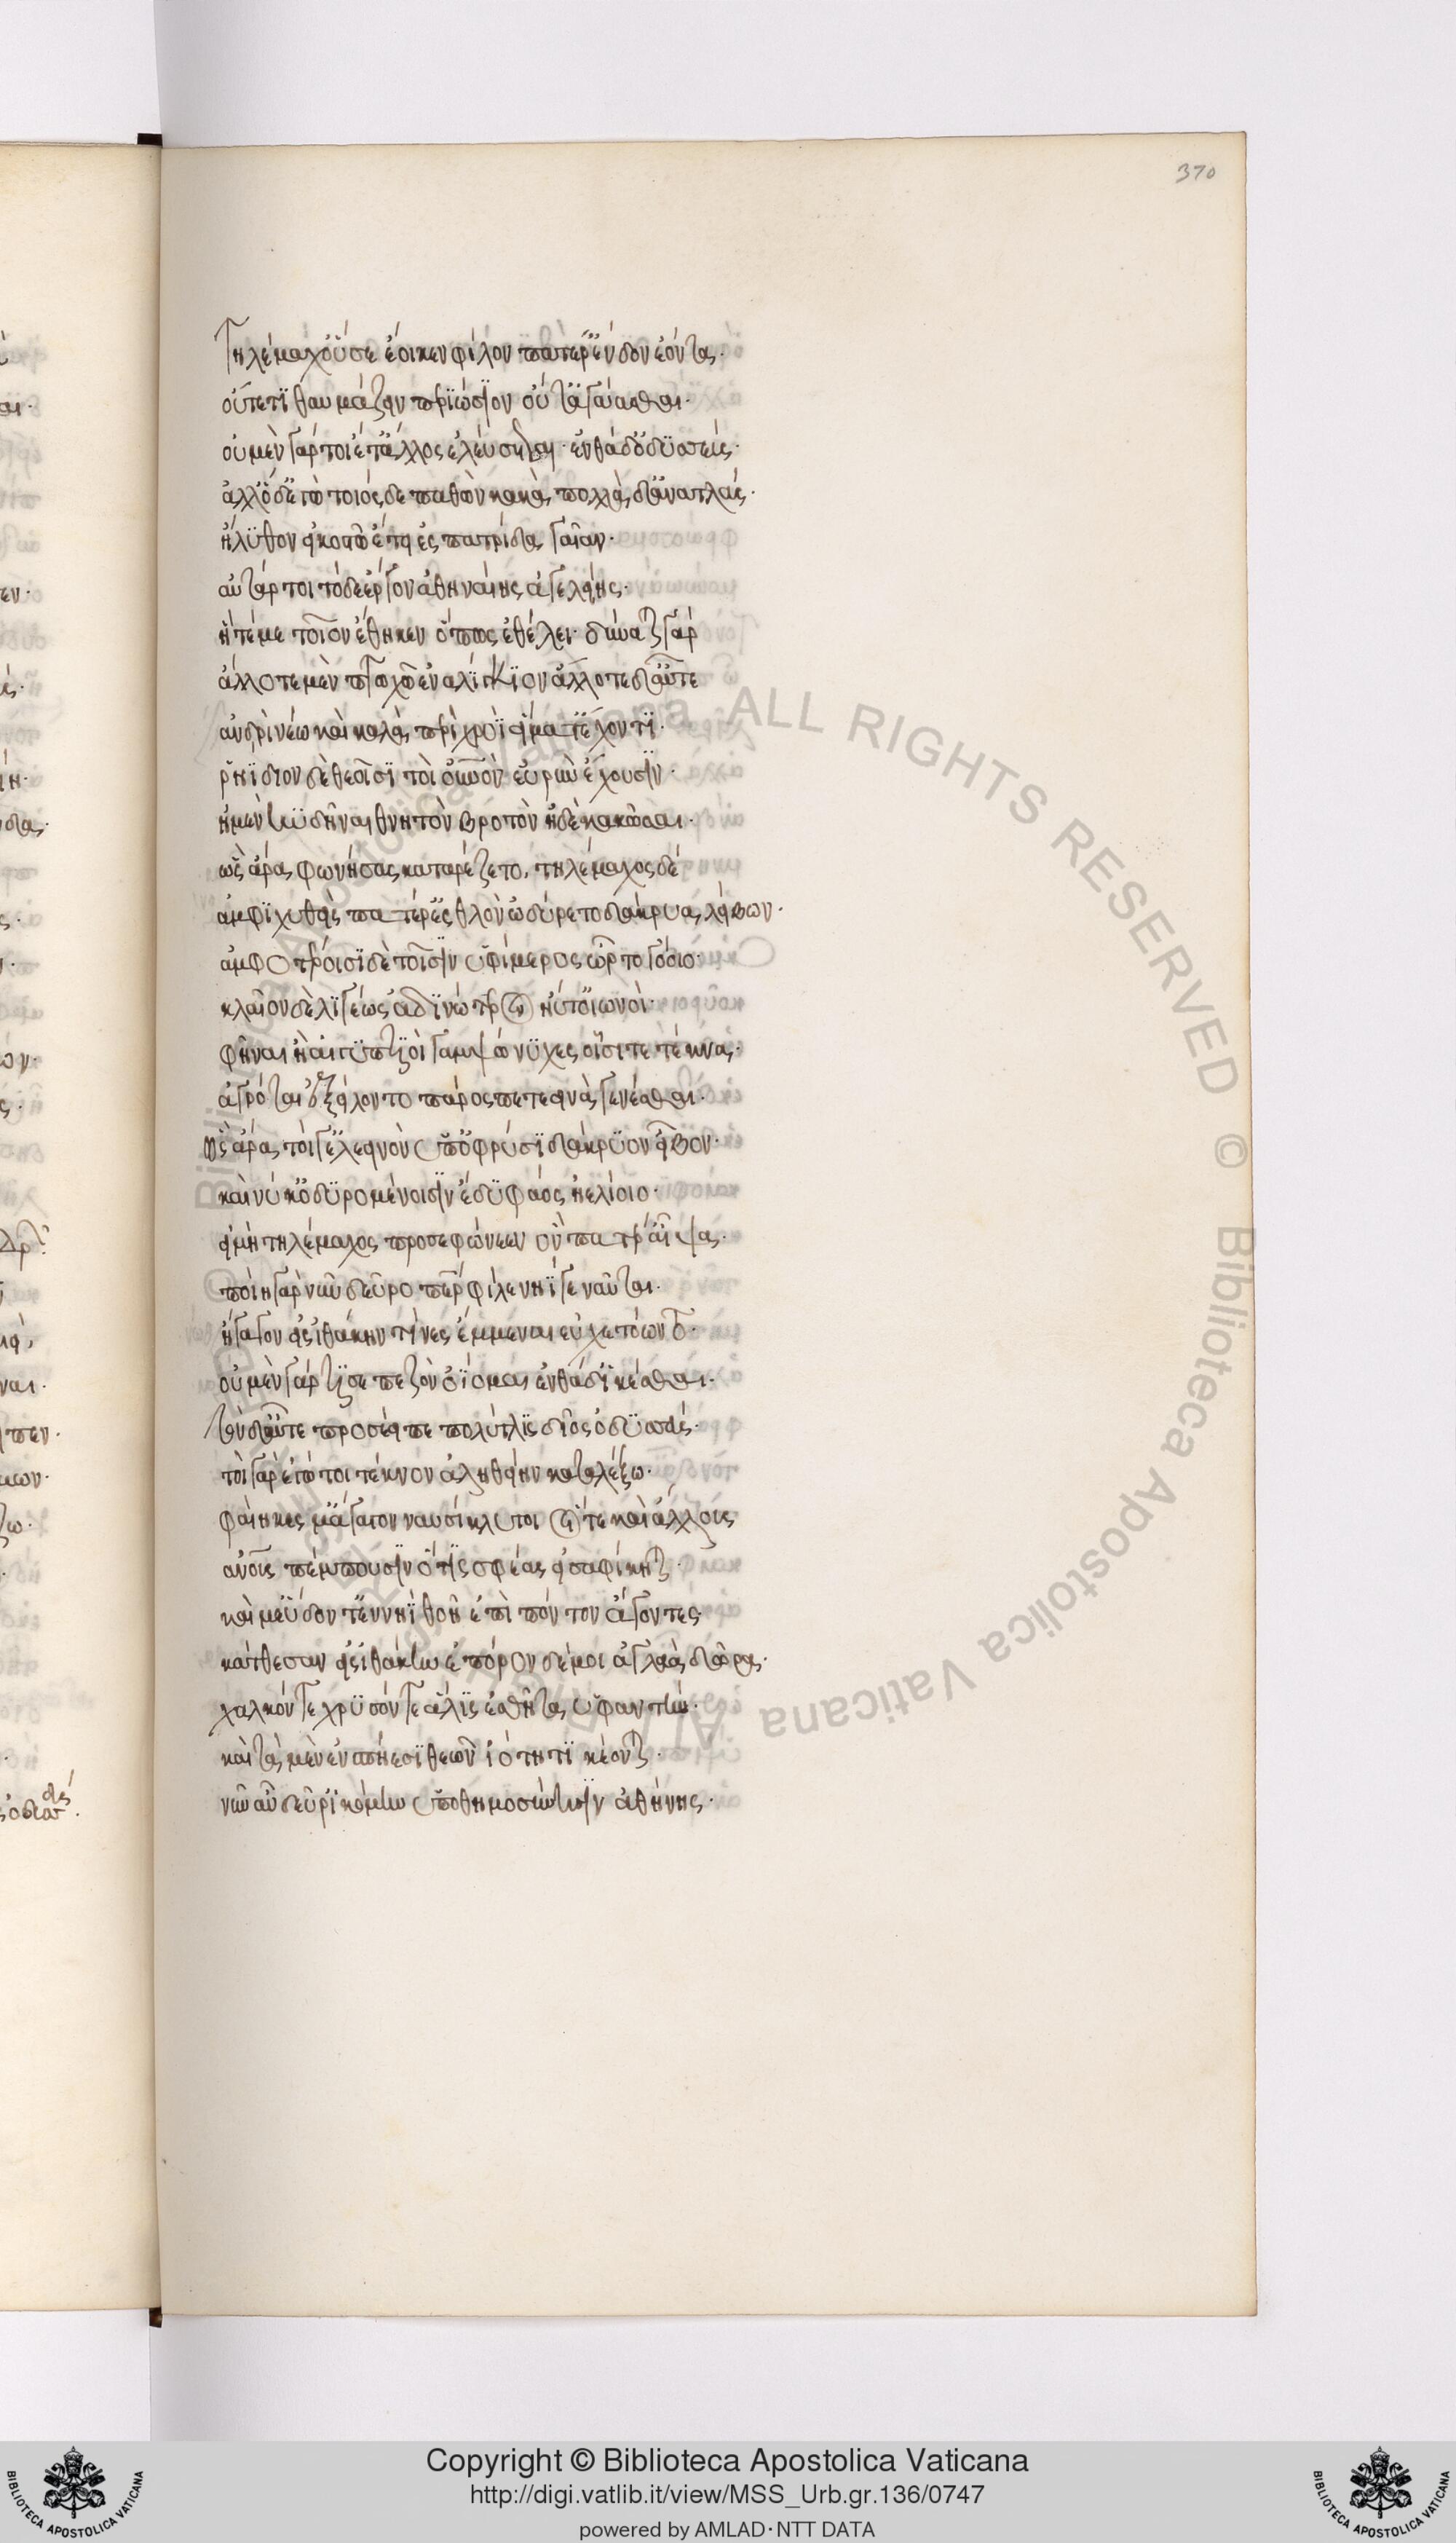 370
Τηλέμαχ' οὔ σε ἔοικεν φίλον πατέρ' ἔνδον ἐόντα·
οὔτε τϊ θαυμάζειν περϊώσϊον οὔτ' ἀγάασθαι·
οὐ μὲν γάρ τοι ἔτ' ἄλλος ἐλεύσεται ἐνθάδ' ὀδϋσσεύς·
ἀλλ' ὅδ' ἐγὼ τοιόσδε παθὼν κακὰ πολλὰ δ' ἀνατλάς·
ἤλϋθον εἰκοστῶ ἔτει ἐς πατρίδα γαῖαν·
αὐτάρ τοι τόδε ἔργον ἀθηναίης ἀγελείης·
ἥτέ με τοῖον ἔθηκεν ὅπως ἐθέλει· δύναται γάρ
ἄλλοτε μὲν πτωχῶ ἐναλίγκϊον ἄλλοτε δ' αὖτε
ἀνδρὶ νέω καὶ καλὰ περὶ χροῒ εἵματ' ἔχοντϊ·
ρηΐδιον δὲ θεοῖσϊ τοὶ οὐρανὸν εὐρὺν ἔχουσϊν·
ἠμὲν κυδῆναι θνητὸν βροτὸν ἠδὲ κακῶσαι·
ὣς ἄρα φωνήσας κατ' ἄρ' ἕζετο, τηλέμαχος δέ
ἀμφϊχυθεὶς πατέρ' ἐσθλὸν ὠδύρετο δάκρυα λείβων·
ἀμφοτέροισϊ δὲ τοῖσϊν ὑφ' ἵμερος ὦρτο γόοιο·
κλαῖον δὲ λϊγέως ἁδϊνώτερον ἤ τ' οἰωνοί·
φῆναι ἢ αἰγϋπιοὶ γαμψώνϋχες οἷσί τε τέκνα·
ἀγρόται ἐξείλοντο πάρος πετεεινὰ γενέσθαι·
ὣς ἄρα τοί γ' ἐλεεινὸν ὑπ' ὀφρύσϊ δάκρϋον εἶβον·
καί νύ κ' ὀδϋρομένοισϊν ἔδϋ φάος ἠελίοιο·
εἰ μὴ τηλέμαχος προσεφώνεεν ὃν πατέρ' αἶψα·
ποίη γὰρ νῦν δεῦρο πάτερ φίλε νηΐ γε ναῦται·
ἤγαγον εἰς ἰθάκην τίνες ἔμμεναι εὐχετόωντο·
οὐ μὲν γάρ τί σε πεζὸν ὀΐομαι ἐνθάδ' ἱκέσθαι·
τὸν δ' αὖτε προσέειπε πολύτλας δῖος ὀδϋσσεύς·
τοὶ γὰρ ἐγώ τοι τέκνον ἀληθείην καταλέξω·
φαίηκές μ' ἄγαγον ναυσίκλυτοι οἵ τε καὶ ἄλλους
ἀνους πέμπουσϊν ὅτϊς σφέας εἰσαφίκηται·
καί μ' εὕδοντ' ἐν νηῒ θοῆ ἐπὶ πόντον ἄγοντες
κάτθεσαν εἰς ἰθάκην ἔπορον δέ μοι ἀγλαὰ δῶρα·
χαλκόν τε χρϋσόν τε ἅλϊς ἐσθῆτα ὑφαντήν·
καὶ τὰ μὲν ἐν σπήεσϊ θεῶν ἰότητϊ κέονται·
νῦν αὖ δεῦρ' ἱκόμην ὑποθημοσύνησϊν ἀθήνης·
Copyright © Biblioteca Apostolica Vaticana
http://digi.vatlib.it/view/MSS_Urb.gr.136/0747
powered by AMLAD·NTT DATA